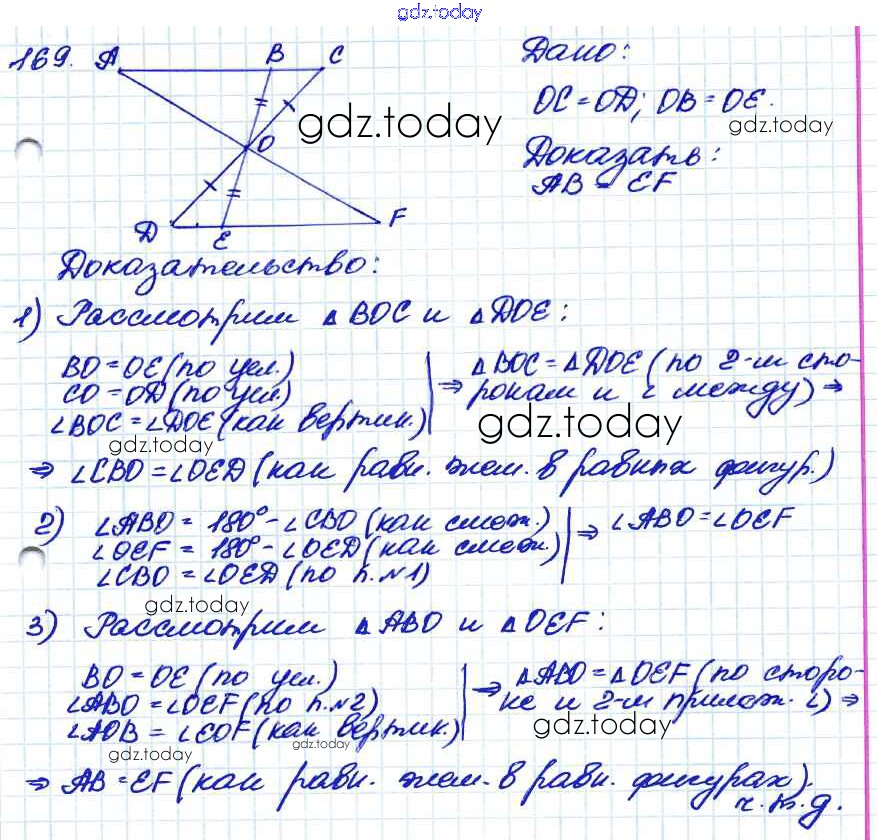 gdz.today
169. A B C
O
D E F
Дано:
OC = OD; OB = OE.
gdz.today
gdz.today
Доказать:
AB = EF
Доказательство:
1) Рассмотрим △BOC и △DOE:
BO = OE (по усл.)
CO = OD (по усл)
∠BOC = ∠DOE (как вертик.)
⇒ △BOC = △DOE (по 2-м сто-
ронам и ∠ между) ⇒
gdz.today
gdz.today
⇒ ∠CBO = ∠OED (как равн. элем. в равных фигур.)
2) ∠ABO = 180° - ∠CBO (как смеж.)
∠OEF = 180° - ∠OED (как смеж.)
∠CBO = ∠OED (по п. №1)
⇒ ∠ABO = ∠OEF
gdz.today
3) Рассмотрим △ABO и △OEF:
BO = OE (по усл.)
∠ABO = ∠OEF (по п. №2)
∠AOB = ∠EOF (как вертик.)
⇒ △ABO = △OEF (по сторо-
не и 2-м прилеж. ∠) ⇒
gdz.today
gdz.today
gdz.today
⇒ AB = EF (как равн. элем. в равн. фигурах).
ч.т.д.